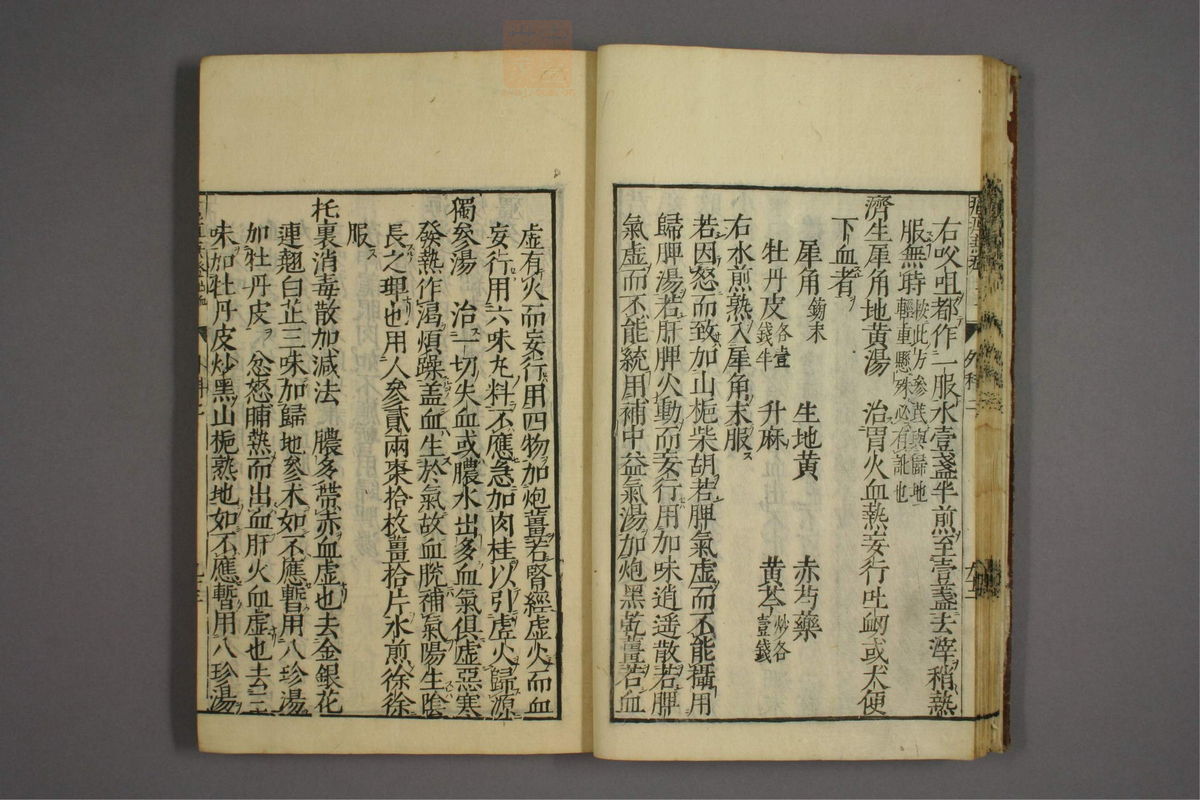 右㕮咀都作一服水壹盞半煎至壹盞去滓稍熱
服無時
按此方參芪與歸地
輕重懸殊必有訛也
濟生犀角地黃湯　治胃火血熱妄行吐衂或大便
下血者
犀角鎊末　生地黃　赤芍藥
牡丹皮各壹錢半　升麻　黃芩炒各壹錢
右水煎熟入犀角末服
若因怒而致加山梔柴胡若脾氣虛而不能攝用
歸脾湯若肝脾火動而妄行用加味逍遥散若脾
氣虛而不能統用補中益氣湯加炮黑乾薑若血
虛有火而妄行用四物加炮薑若腎經虛火而血
妄行用六味丸料不應急加肉桂以引虛火歸源
獨參湯　治一切失血或膿水出多血氣俱虛惡寒
發熱作渴煩躁盖血生於氣故血脫補氣陽生陰
長之理也用人參貳兩棗拾枚薑拾片水煎徐徐
服
托裏消毒散加減法　膿多帶赤血虛也去金銀花
連翹白芷三味加歸地參术如不應暫用八珍湯
加牡丹皮　忿怒晡熱而出血肝火血虛也去三
味加牡丹皮炒黑山梔熟地如不應暫用八珍湯
外科二